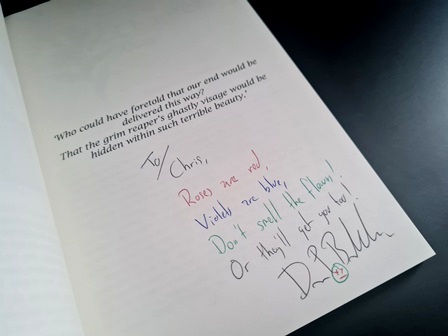 'Who could have foretold that our end would be
delivered this way?
That the grim reaper's ghastly visage would be
hidden within such terrible beauty.'
To/ Chris,
Roses are red,
Violets are blue,
Don't smell the flowers!
Or they'll get you too!